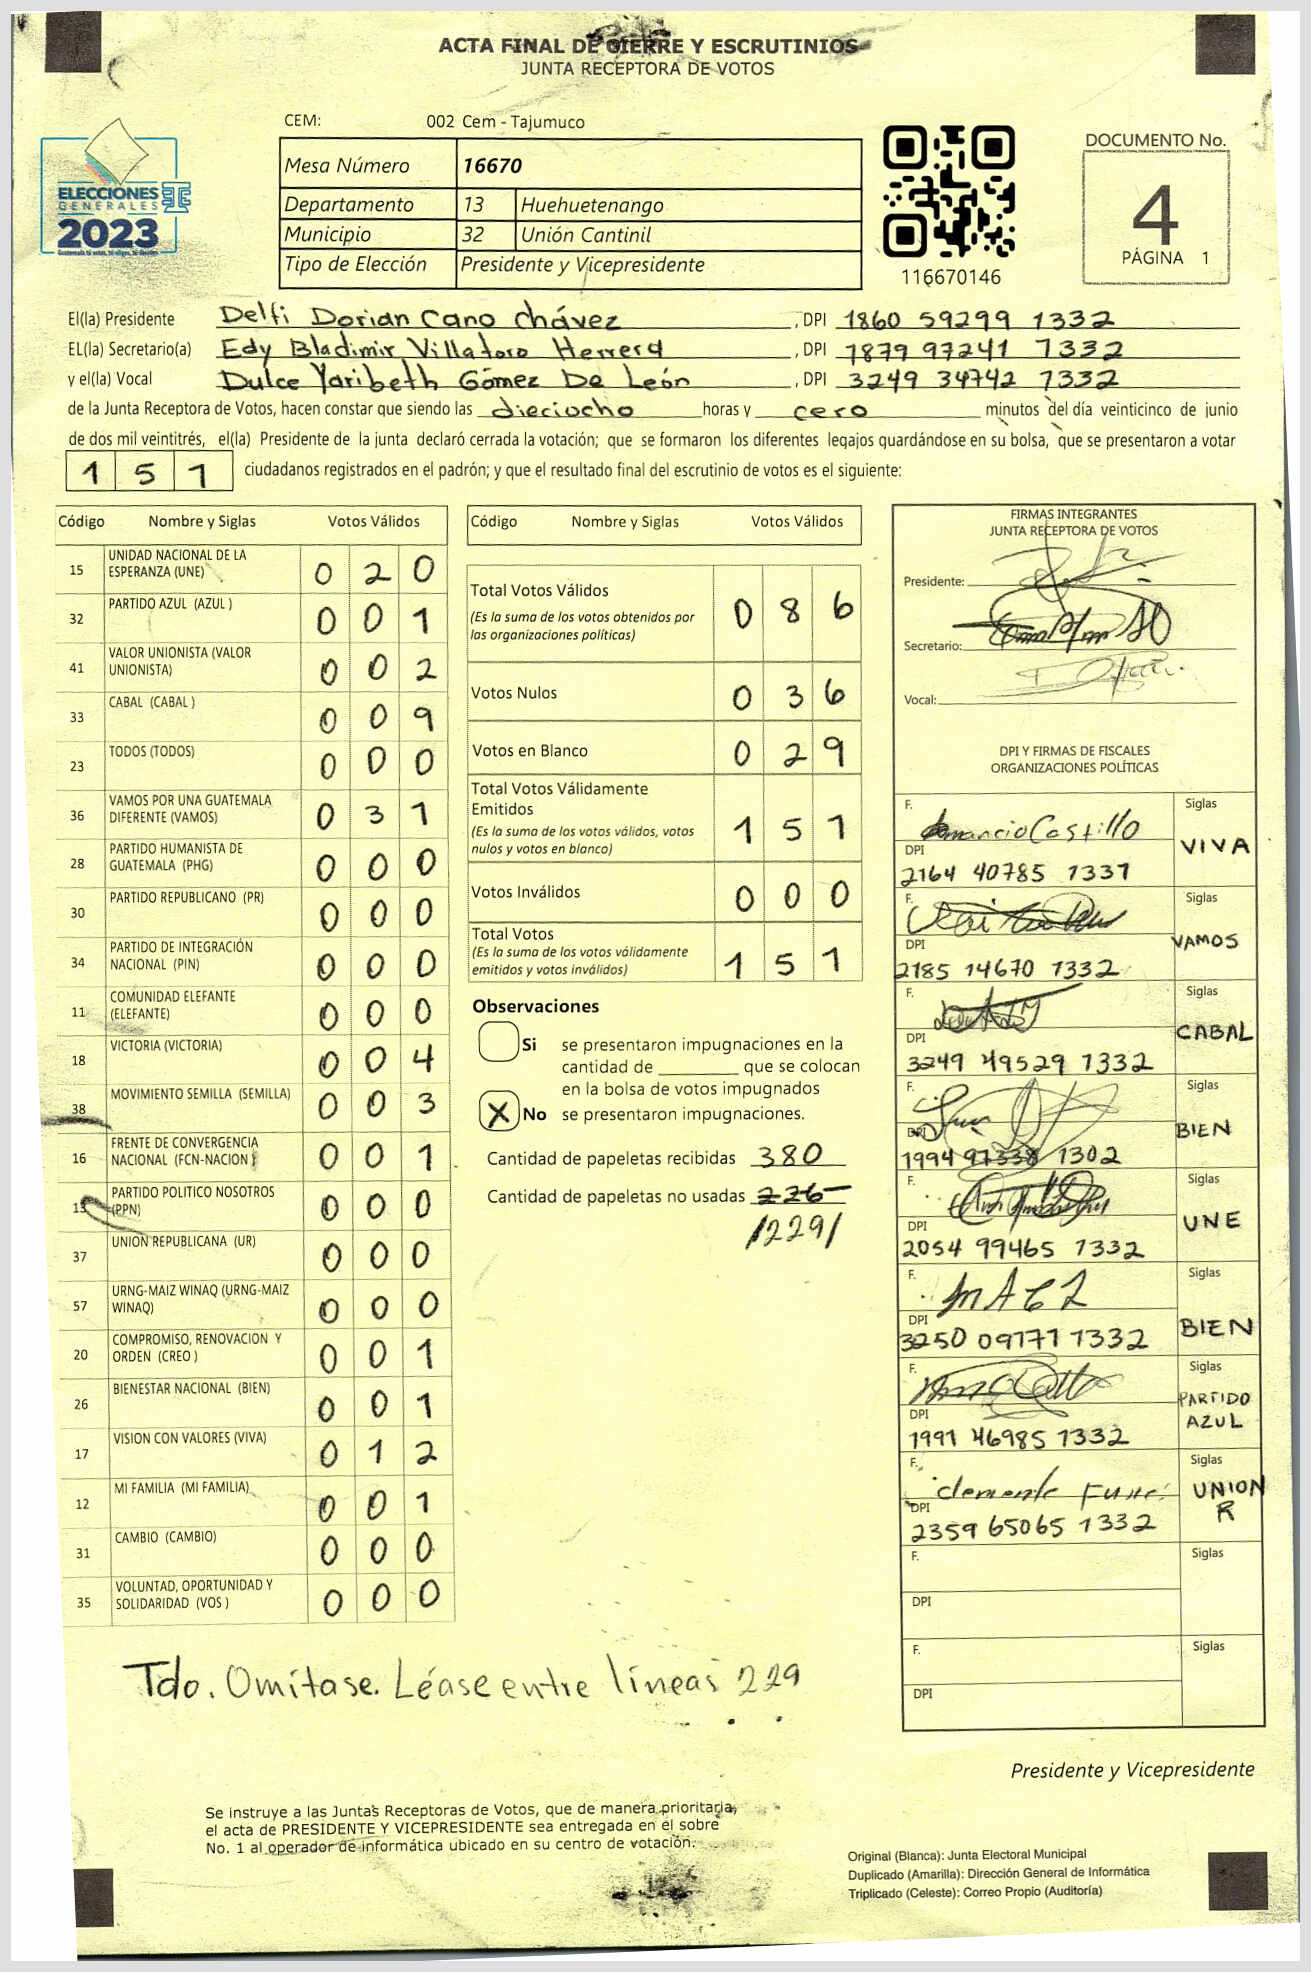 ACTA FINAL DE CIERRE Y ESCRUTINIOS
JUNTA RECEPTORA DE VOTOS
CEM: 002 Cem - Tajumuco
Mesa Número 16670
Departamento 13 Huehuetenango
Municipio 32 Unión Cantinil
Tipo de Elección Presidente y Vicepresidente
ELECCIONES
GENERALES
2023
116670146
DOCUMENTO No.
4
PÁGINA 1
El(la) Presidente Delfi Dorian Cano Chávez, DPI 1860 59299 1332
EL(la) Secretario(a) Edy Bladimir Villatoro Herrera, DPI 1879 97241 1332
y el(la) Vocal Dulce Yaribeth Gómez De León, DPI 3249 34742 1332
de la Junta Receptora de Votos, hacen constar que siendo las dieciocho horas y cero minutos del día veinticinco de junio
de dos mil veintitrés, el(la) Presidente de la junta declaró cerrada la votación; que se formaron los diferentes legajos guardándose en su bolsa, que se presentaron a votar
1 5 1 ciudadanos registrados en el padrón; y que el resultado final del escrutinio de votos es el siguiente:
Código Nombre y Siglas Votos Válidos
15 UNIDAD NACIONAL DE LA
ESPERANZA (UNE) 0 2 0
32 PARTIDO AZUL (AZUL ) 0 0 1
41 VALOR UNIONISTA (VALOR
UNIONISTA) 0 0 2
33 CABAL (CABAL ) 0 0 9
23 TODOS (TODOS) 0 0 0
36 VAMOS POR UNA GUATEMALA
DIFERENTE (VAMOS) 0 3 1
28 PARTIDO HUMANISTA DE
GUATEMALA (PHG) 0 0 0
30 PARTIDO REPUBLICANO (PR) 0 0 0
34 PARTIDO DE INTEGRACIÓN
NACIONAL (PIN) 0 0 0
11 COMUNIDAD ELEFANTE
(ELEFANTE) 0 0 0
18 VICTORIA (VICTORIA) 0 0 4
38 MOVIMIENTO SEMILLA (SEMILLA) 0 0 3
16 FRENTE DE CONVERGENCIA
NACIONAL (FCN-NACION ) 0 0 1
13 PARTIDO POLITICO NOSOTROS
(PPN) 0 0 0
37 UNION REPUBLICANA (UR) 0 0 0
57 URNG-MAIZ WINAQ (URNG-MAIZ
WINAQ) 0 0 0
20 COMPROMISO, RENOVACION Y
ORDEN (CREO ) 0 0 1
26 BIENESTAR NACIONAL (BIEN) 0 0 1
17 VISION CON VALORES (VIVA) 0 1 2
12 MI FAMILIA (MI FAMILIA) 0 0 1
31 CAMBIO (CAMBIO) 0 0 0
35 VOLUNTAD, OPORTUNIDAD Y
SOLIDARIDAD (VOS ) 0 0 0
Código Nombre y Siglas Votos Válidos
Total Votos Válidos 0 8 6
(Es la suma de los votos obtenidos por
las organizaciones políticas)
Votos Nulos 0 3 6
Votos en Blanco 0 2 9
Total Votos Válidamente
Emitidos 1 5 1
(Es la suma de los votos válidos, votos
nulos y votos en blanco)
Votos Inválidos 0 0 0
Total Votos 1 5 1
(Es la suma de los votos válidamente
emitidos y votos inválidos)
Observaciones
Si se presentaron impugnaciones en la
cantidad de ________ que se colocan
en la bolsa de votos impugnados
X No se presentaron impugnaciones.
Cantidad de papeletas recibidas 380
Cantidad de papeletas no usadas 226
/229/
FIRMAS INTEGRANTES
JUNTA RECEPTORA DE VOTOS
Presidente:
Secretario:
Vocal:
DPI Y FIRMAS DE FISCALES
ORGANIZACIONES POLÍTICAS
F. Amancio Castillo Siglas VIVA
DPI 2164 40785 1331
F. Siglas VAMOS
DPI 2185 14670 1332
F. Siglas CABAL
DPI 3249 49529 1332
F. Siglas BIEN
DPI 1994 97338 1302
F. Siglas UNE
DPI 2054 99465 1332
F. Siglas BIEN
DPI 3250 09171 1332
F. Siglas PARTIDO
AZUL
DPI 1991 46985 1332
F. clemente Siglas UNION
R
DPI 2359 65065 1332
F. Siglas
DPI
F. Siglas
DPI
Tdo. Omítase. Léase entre líneas 229
Presidente y Vicepresidente
Se instruye a las Juntas Receptoras de Votos, que de manera prioritaria,
el acta de PRESIDENTE Y VICEPRESIDENTE sea entregada en el sobre
No. 1 al operador de informática ubicado en su centro de votación.
Original (Blanca): Junta Electoral Municipal
Duplicado (Amarilla): Dirección General de Informática
Triplicado (Celeste): Correo Propio (Auditoría)